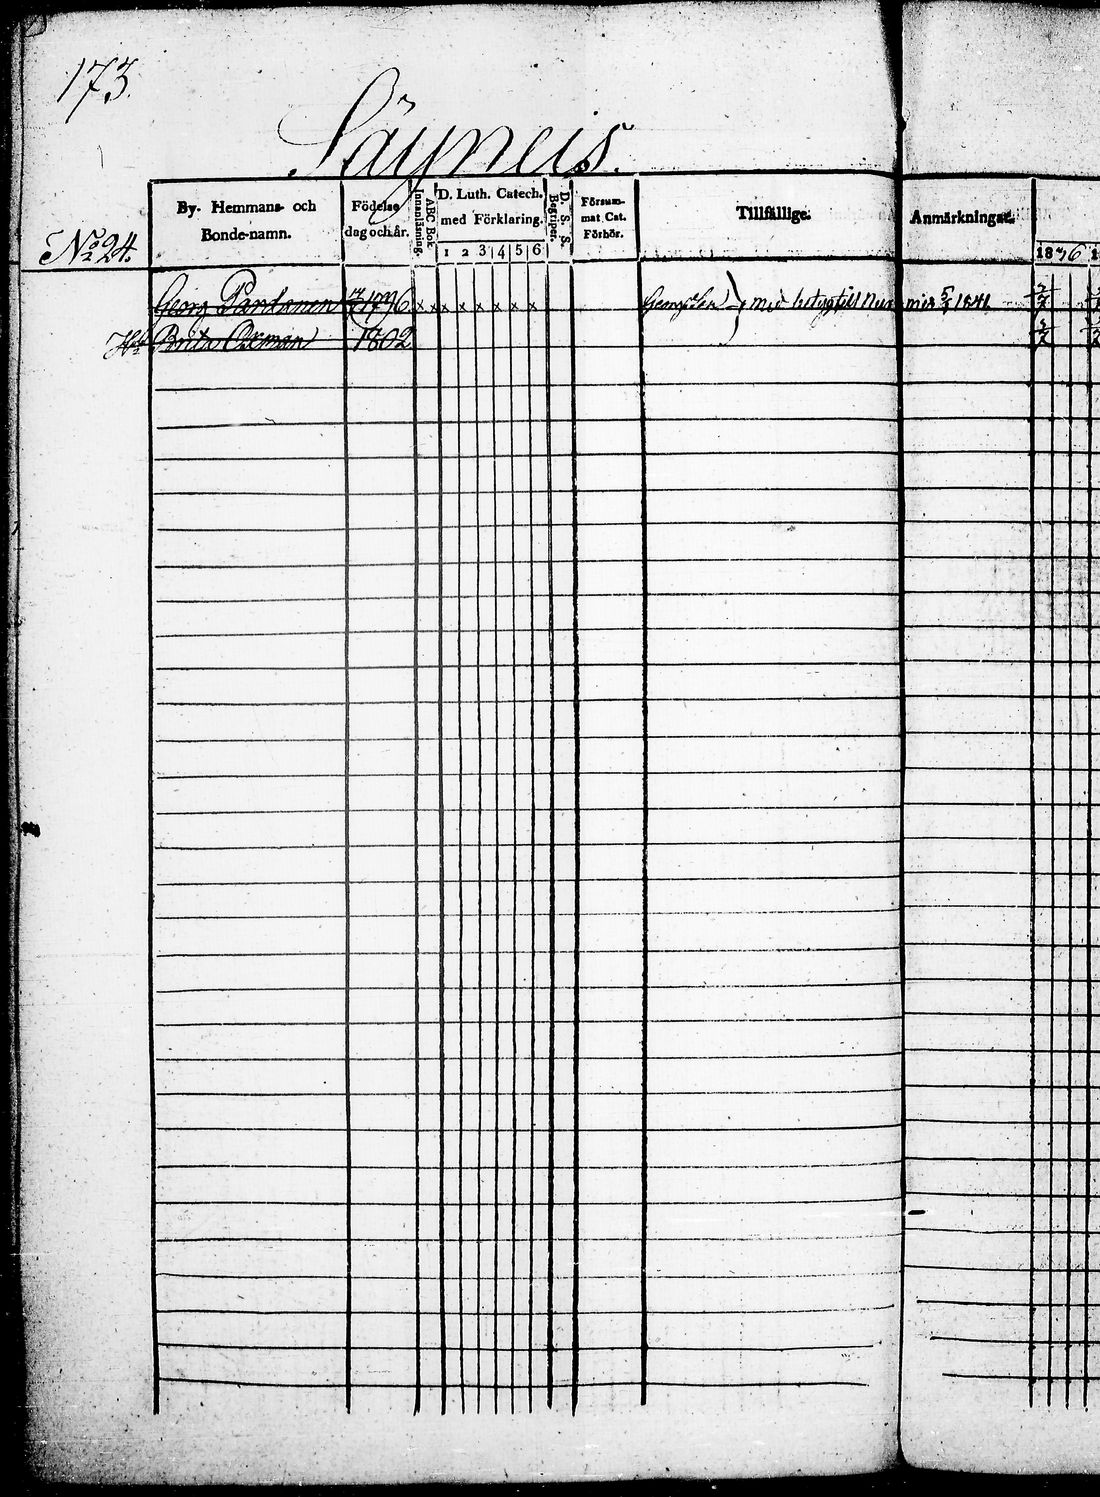 173.
Säyneis.
No 24.
By. Hemmans- och Bonde-namn.
Födelse dag och år.
ABC Bok Innanläsning.
D. Luth. Catech. med Förklaring.
1 2 3 4 5 6
D. S. S. Begriper.
Försummat Cat. Förhör.
Tillfällige Anmärkningar.
1836
Georg 1796 x x x x x x x x med betyg till Nurmis 1841
Brita 1802